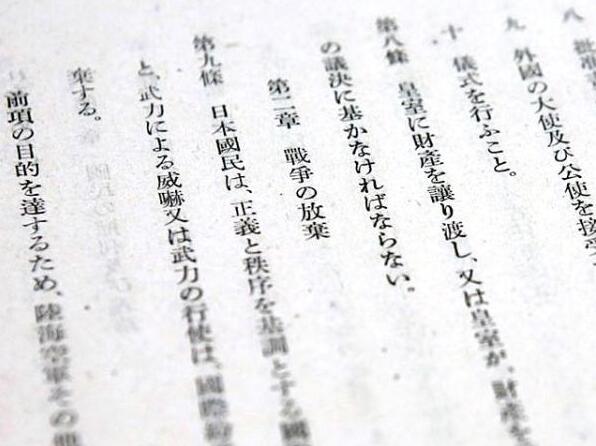 八 批准書
九 外國の大使及び公使を接受
十 儀式を行ふこと。
第八條 皇室に財産を讓り渡し、又は皇室が、財産を
の議決に基かなければならない。
第二章 戰爭の放棄
第九條 日本國民は、正義と秩序を基調とする國
と、武力による威嚇又は武力の行使は、國際紛
棄する。
前項の目的を達するため、陸海空軍その他